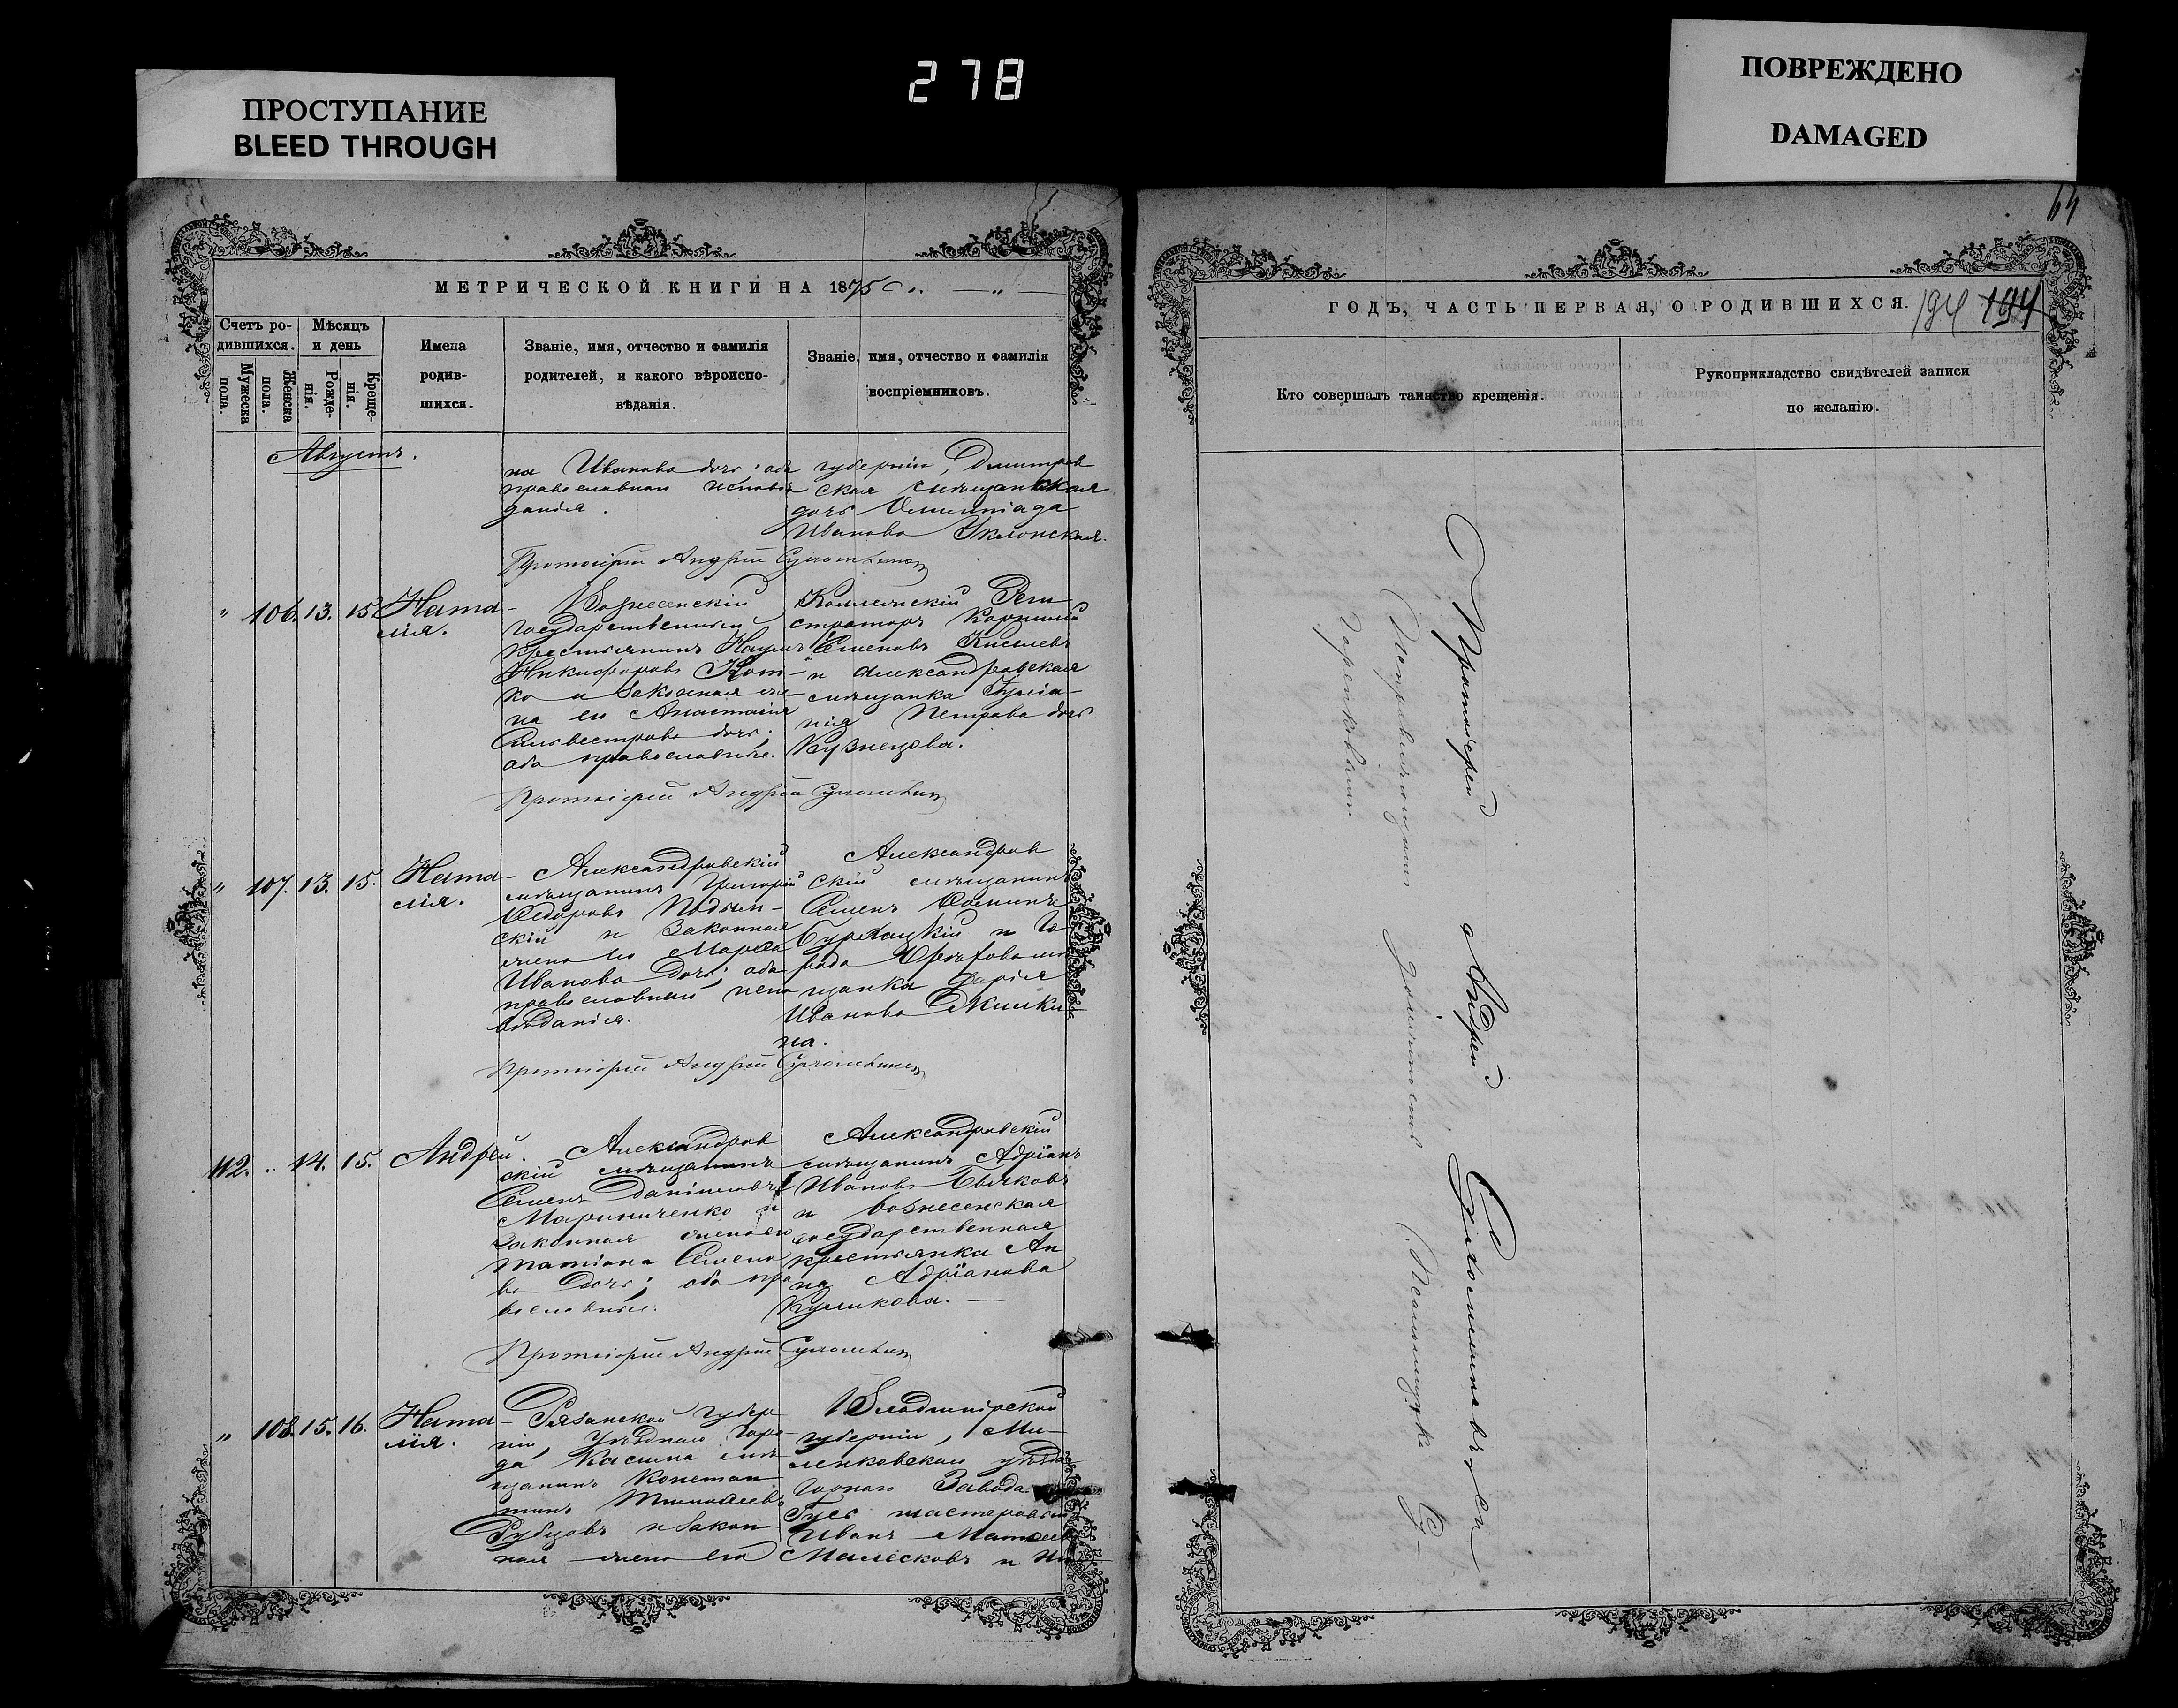 ПРОСТУПАНИЕ
BLEED THROUGH
278
ПОВРЕЖДЕНО
DAMAGED
64
МЕТРИЧЕСКОЙ КНИГИ НА 1875
Счетъ ро-
дившихся.
Мужеска
пола.
Женска
пола.
Мѣсяцъ
и день
Рожде-
нія.
Креще-
нія.
Имена
родив-
шихся.
Званіе, имя, отчество и фамилія
родителей, и какого вѣроиспо-
вѣданія.
Званіе, имя, отчество и фамилія
воспріемниковъ.
Августъ.
на Иванова дочь; оба
православнаго исповѣ
данія.
губерніи, Дмитров
ская мѣщанская
дочь Олимпіада
Иванова Уклонская.
Протоіерей Андрей
" 106. 13. 15. Ната-
лія.
Вознесенскій
государственный
крестьянинъ Наумъ
Никифоровъ Кот-
ко и законная же
на его Анастасія
Сильвестрова дочь;
оба православные.
Коллежскій Реги
страторъ Корнилій
Семеновъ Киселевъ
и Александровская
мѣщанка Іуліа-
нія Петрова дочь
Кузнецова.
Протоіерей Андрей
" 107. 13. 15. Ната-
лія.
Александровскій
мѣщанинъ Григорій
Ѳедоровъ
скій и законная
жена его Марѳа
Иванова дочь; оба
православнаго испо
вѣданія.
Александров
скій мѣщанинъ
Семенъ Ѳоминъ
и Го-
рода Орѣхова мѣ
щанка Дарія
Иванова
на.
Протоіерей Андрей
112. " 14. 15. Андрей.
Александров
скій мѣщанинъ
Семенъ Даніиловъ
Мариниченко и
законная жена его
Татіана Семено
ва дочь; оба пра
вославные.
Александровскій
мѣщанинъ Адріанъ
Ивановъ Бѣляковъ
и вознесенская
государственная
крестьянка Ан
на Адріанова
Куликова.
Протоіерей Андрей
" 108. 15. 16. Ната-
лія.
Рязанской губер-
ніи, уѣзднаго горо-
да Касима мѣ
щанинъ Констан
тинъ Тимоѳеевъ
Рубцовъ и закон
ная жена его
Владимірской
губерніи, Ме-
ленковскаго уѣзда
горнаго Завода
Гусь мастеровый
Иванъ Матвѣевъ
и
ГОДЪ, ЧАСТЬ ПЕРВАЯ, О РОДИВШИХСЯ.
194 194
Кто совершалъ таинство крещенія.
Рукоприкладство свидѣтелей записи
по желанію.
Протоіерей Андрей съ
Исправляющимъ должность Псаломщика С.